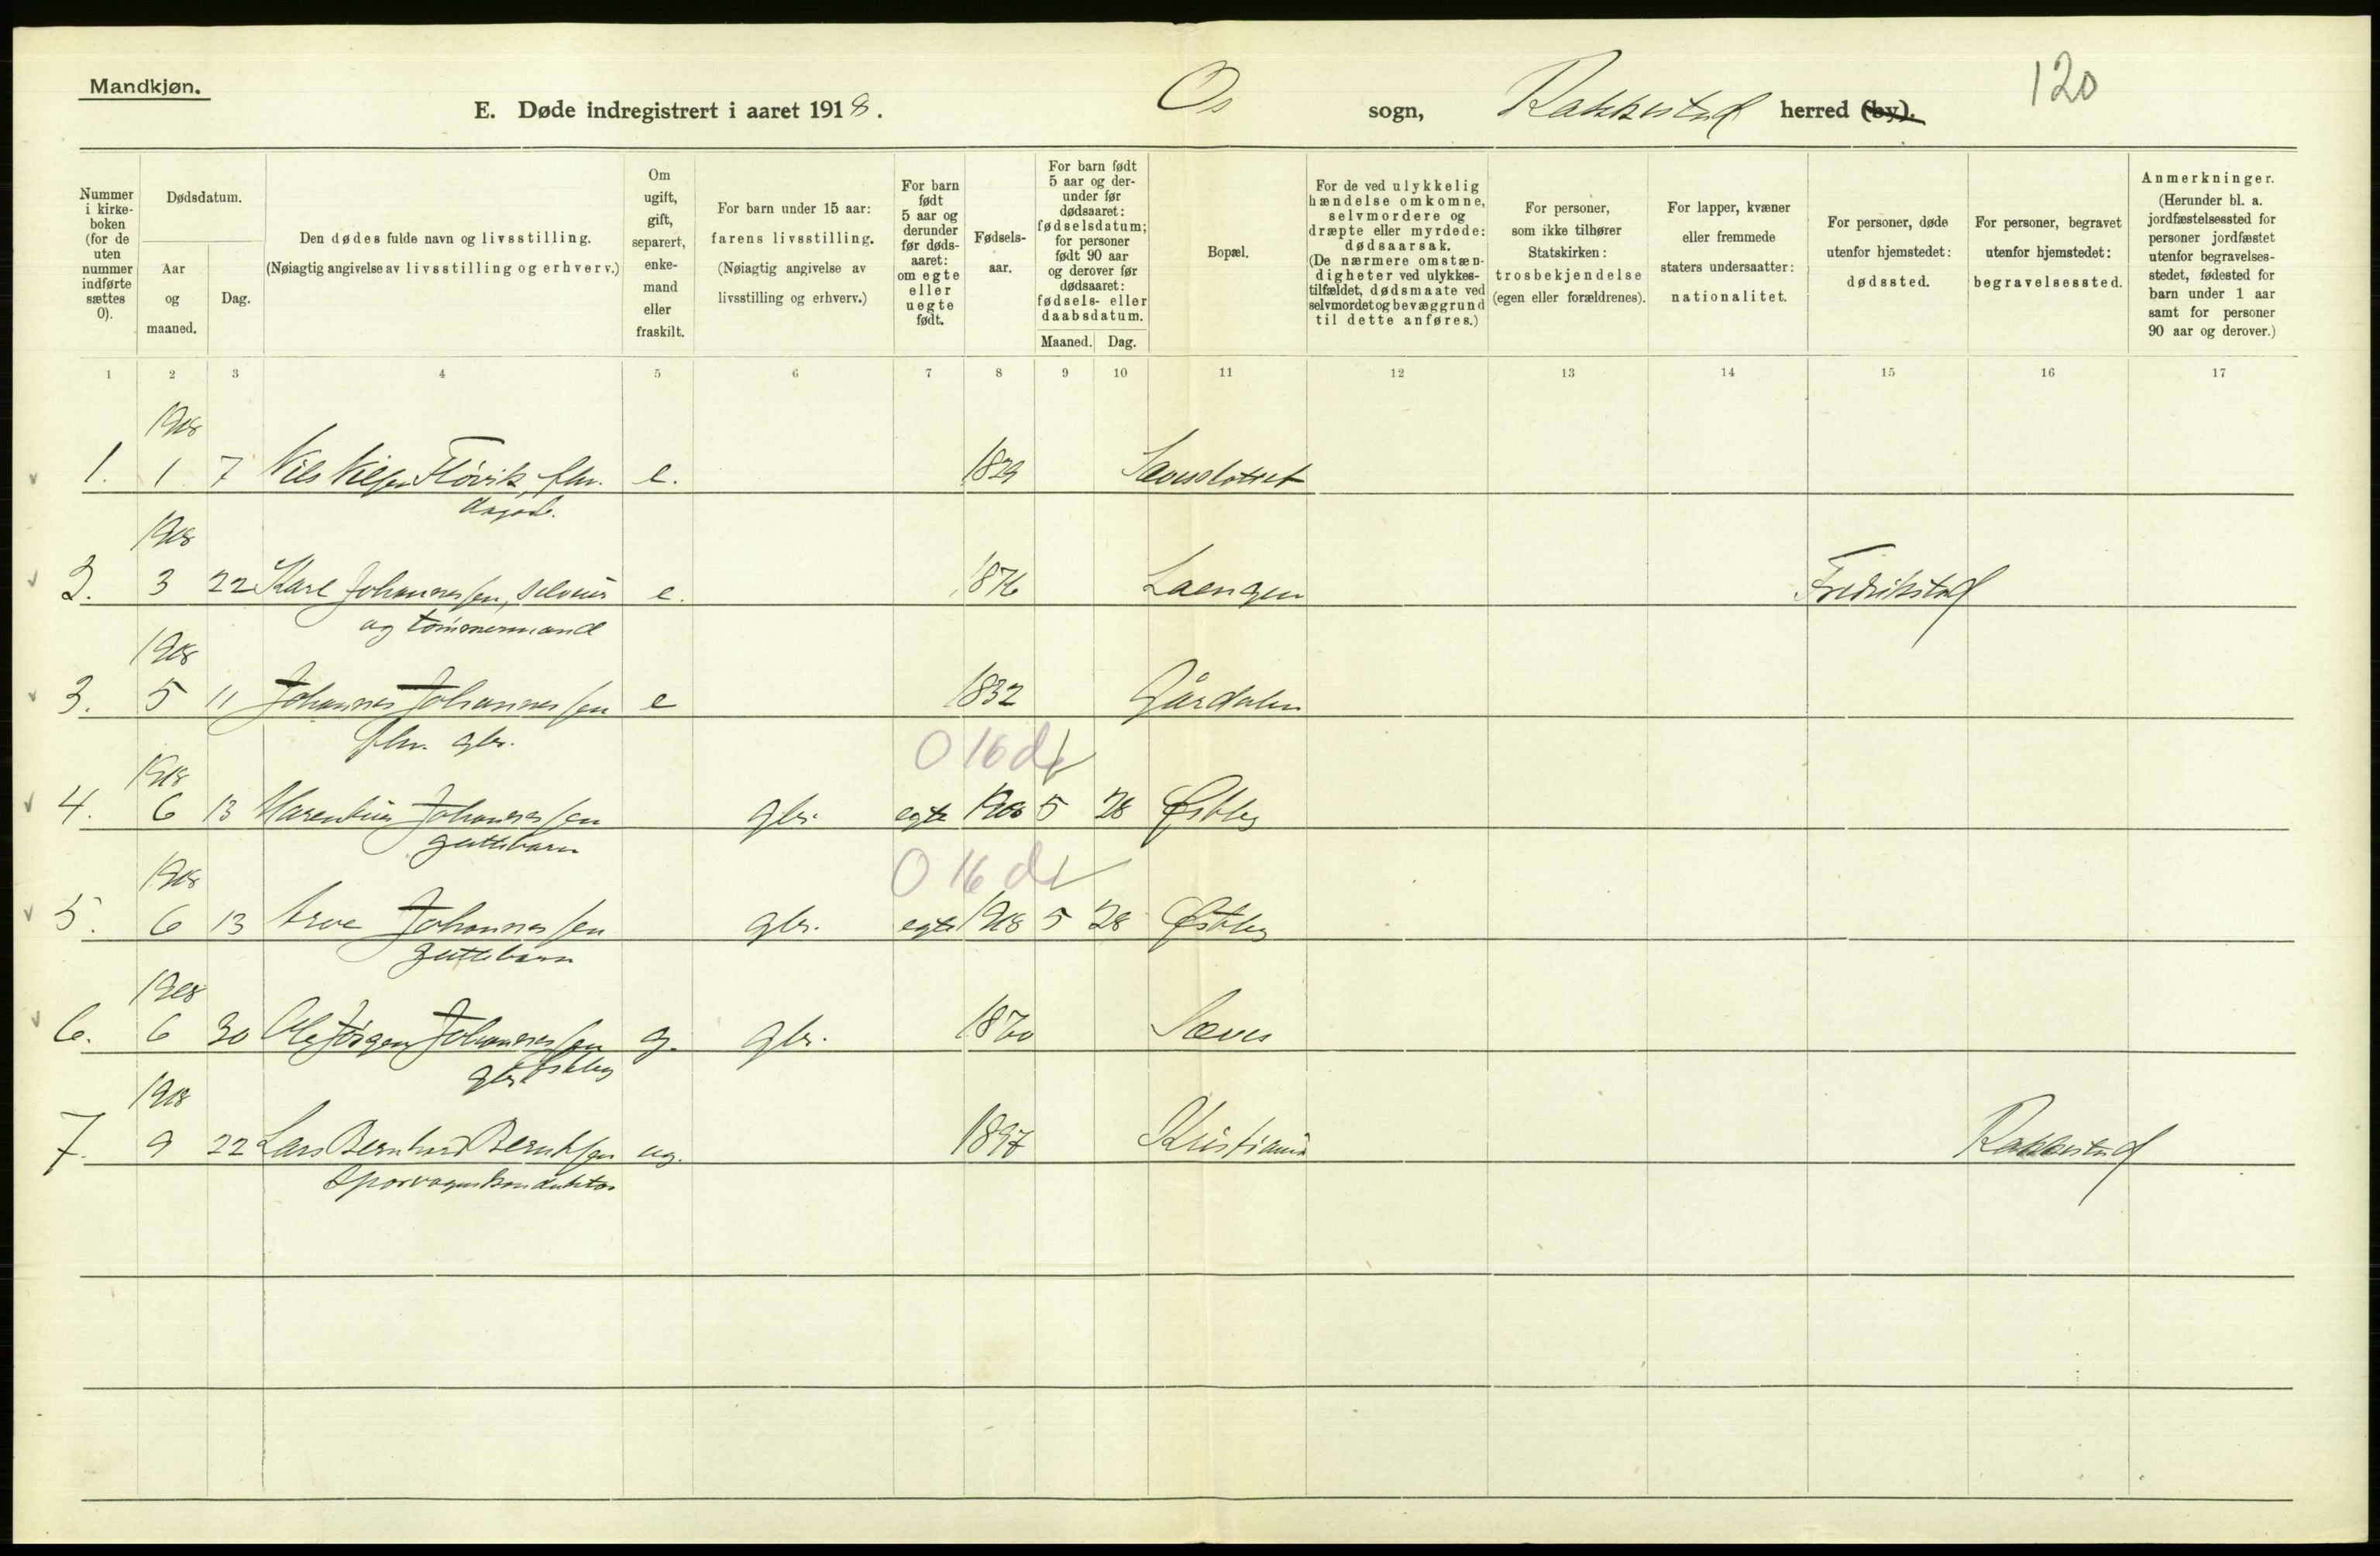 Mandkjøn.
E. Døde indregistrert i aaret 1918. Os sogn, Rakkestad herred (by). 120
Nummer i kirke-boken (for de uten nummer indførte sættes 0).
Dødsdatum.
Aar og maaned.
Dag.
Den dødes fulde navn og livsstilling.
(Nøiagtig angivelse av livsstilling og erhverv.)
Om ugift, gift, separert, enke-mand eller fraskilt.
For barn under 15 aar: farens livsstilling.
(Nøiagtig angivelse av livsstilling og erhverv.)
For barn født 5 aar og derunder før døds-aaret: om egte eller uegte født.
Fødsels-aar.
For barn født 5 aar og der-under før dødsaaret: fødselsdatum; for personer født 90 aar og derover før dødsaaret: fødsels- eller daabsdatum.
Maaned. Dag.
Bopæl.
For de ved ulykkelig hændelse omkomne, selvmordere og dræpte eller myrdede: dødsaarsak.
(De nærmere omstæn-digheter ved ulykkes-tilfældet, dødsmaate ved selvmordet og bevæggrund til dette anføres.)
For personer, som ikke tilhører Statskirken: trosbekjendelse (egen eller forældrenes).
For lapper, kvæner eller fremmede staters undersaatter: nationalitet.
For personer, døde utenfor hjemstedet: dødssted.
For personer, begravet utenfor hjemstedet: begravelsessted.
Anmerkninger.
(Herunder bl. a. jordfæstelsessted for personer jordfæstet utenfor begravelses-stedet, fødested for barn under 1 aar samt for personer 90 aar og derover.)
1 2 3 4 5 6 7 8 9 10 11 12 13 14 15 16 17
1918
1. 1 7 Nils Nilsen Fløvik, fhv. e. 1829
1918
2. 3 22 Karl Johannessen, selveier e. 1876 Laengen Fredrikstad
og tømmermand
1918
3. 5 11 Johannes Johannessen e 1832
fhv. gbr.
0 16 d.
1918
4. 6 13 Johannessen gbr. egte 1918 5 28 Østby
guttebarn
0 16 d.
1918
5. 6 13 Arve Johannessen gbr. egte 1918 5 28 Østby
guttebarn
1918
6. 6 30 Ole Jörgen Johannessen g. gbr. 1870 Sæves
gbr. Østby
1918
7. 9 22 Lars Bernhard Berntsen ug. 1897 Kristiania Rakkestad
Sporvognskonduktør